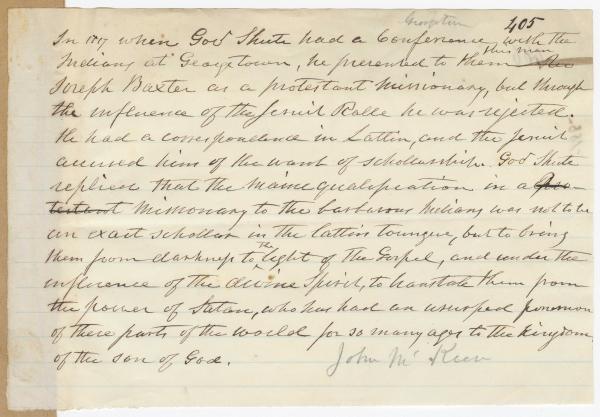 Georgetown 405
In 1717 when Gov Shute had a Conference with the
this man
Indians at Georgtown, he presented to them Rev
Joseph Baxter as a protestant Missionary, but through
the influence of the Jesuit Ralle he was rejected.
He had a correspondence in Lattin, and the Jesuit
accused him of the want of schollarship. Gov Shute
replied that the Maine qualification in a Pro-
testant Missionary to the barbarous Indians was not to be
an exact schollar in the lattin toungue, but to bring
them from darkness to the light of the Gospel, and under the
influence of the divine Spirit, to translate them from
the power of Satan, who has had an usurped possession
of these parts of the world for so many ages to the Kingdom
of the son of God.
John Mc Keen